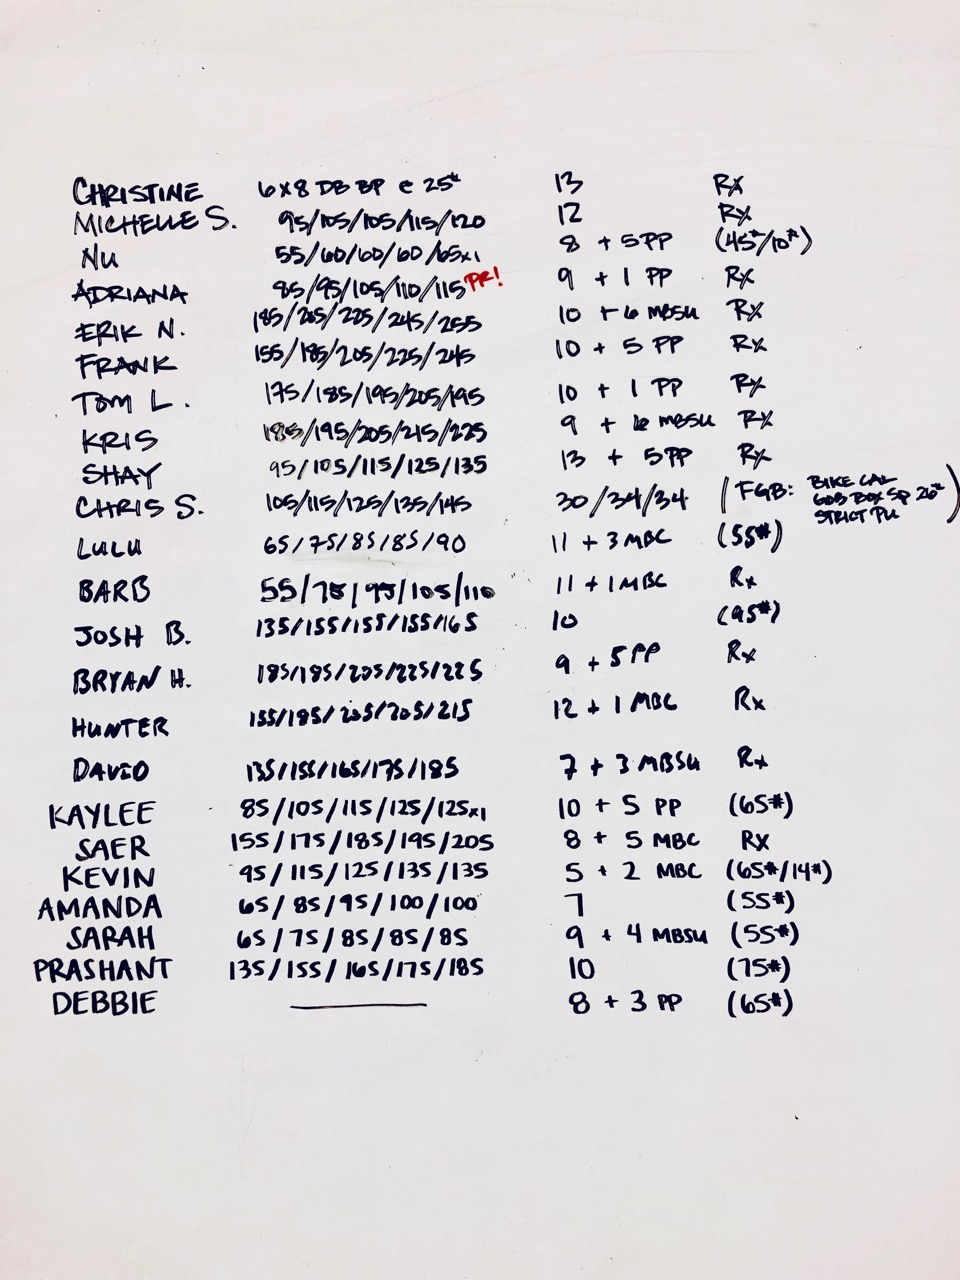 CHRISTINE 6x8 DB BP @ 25# 13 Rx
MICHELLE S. 95/105/105/115/120 12 Rx
NU 55/60/60/60/65x1 8 + 5 PP (45#/10#)
ADRIANA 85/95/105/110/115 PR! 9 + 1 PP Rx
ERIK N. 185/205/225/245/255 10 + 6 MBSU Rx
FRANK 155/185/205/225/245 10 + 5 PP Rx
TOM L. 175/185/195/205/195 10 + 1 PP Rx
KRIS 185/195/205/215/225 9 + 6 MBSU Rx
SHAY 95/105/115/125/135 13 + 5 PP Rx
CHRIS S. 105/115/125/135/145 30/34/34 (FGB: BIKE CAL
BOX SP 26#
STRICT PU)
LULU 65/75/85/85/90 11 + 3 MBC (55#)
BARB 55/75/95/105/110 11 + 1 MBC Rx
JOSH B. 135/155/155/155/165 10 (95#)
BRYAN H. 185/185/205/225/225 9 + 5 PP Rx
HUNTER 155/185/205/205/215 12 + 1 MBC Rx
DAVID 135/155/165/175/185 7 + 3 MBSU Rx
KAYLEE 85/105/115/125/125x1 10 + 5 PP (65#)
SAER 155/175/185/195/205 8 + 5 MBC Rx
KEVIN 95/115/125/135/135 5 + 2 MBC (65#/14#)
AMANDA 65/85/95/100/100 7 (55#)
SARAH 65/75/85/85/85 9 + 4 MBSU (55#)
PRASHANT 135/155/165/175/185 10 (75#)
DEBBIE 8 + 3 PP (65#)